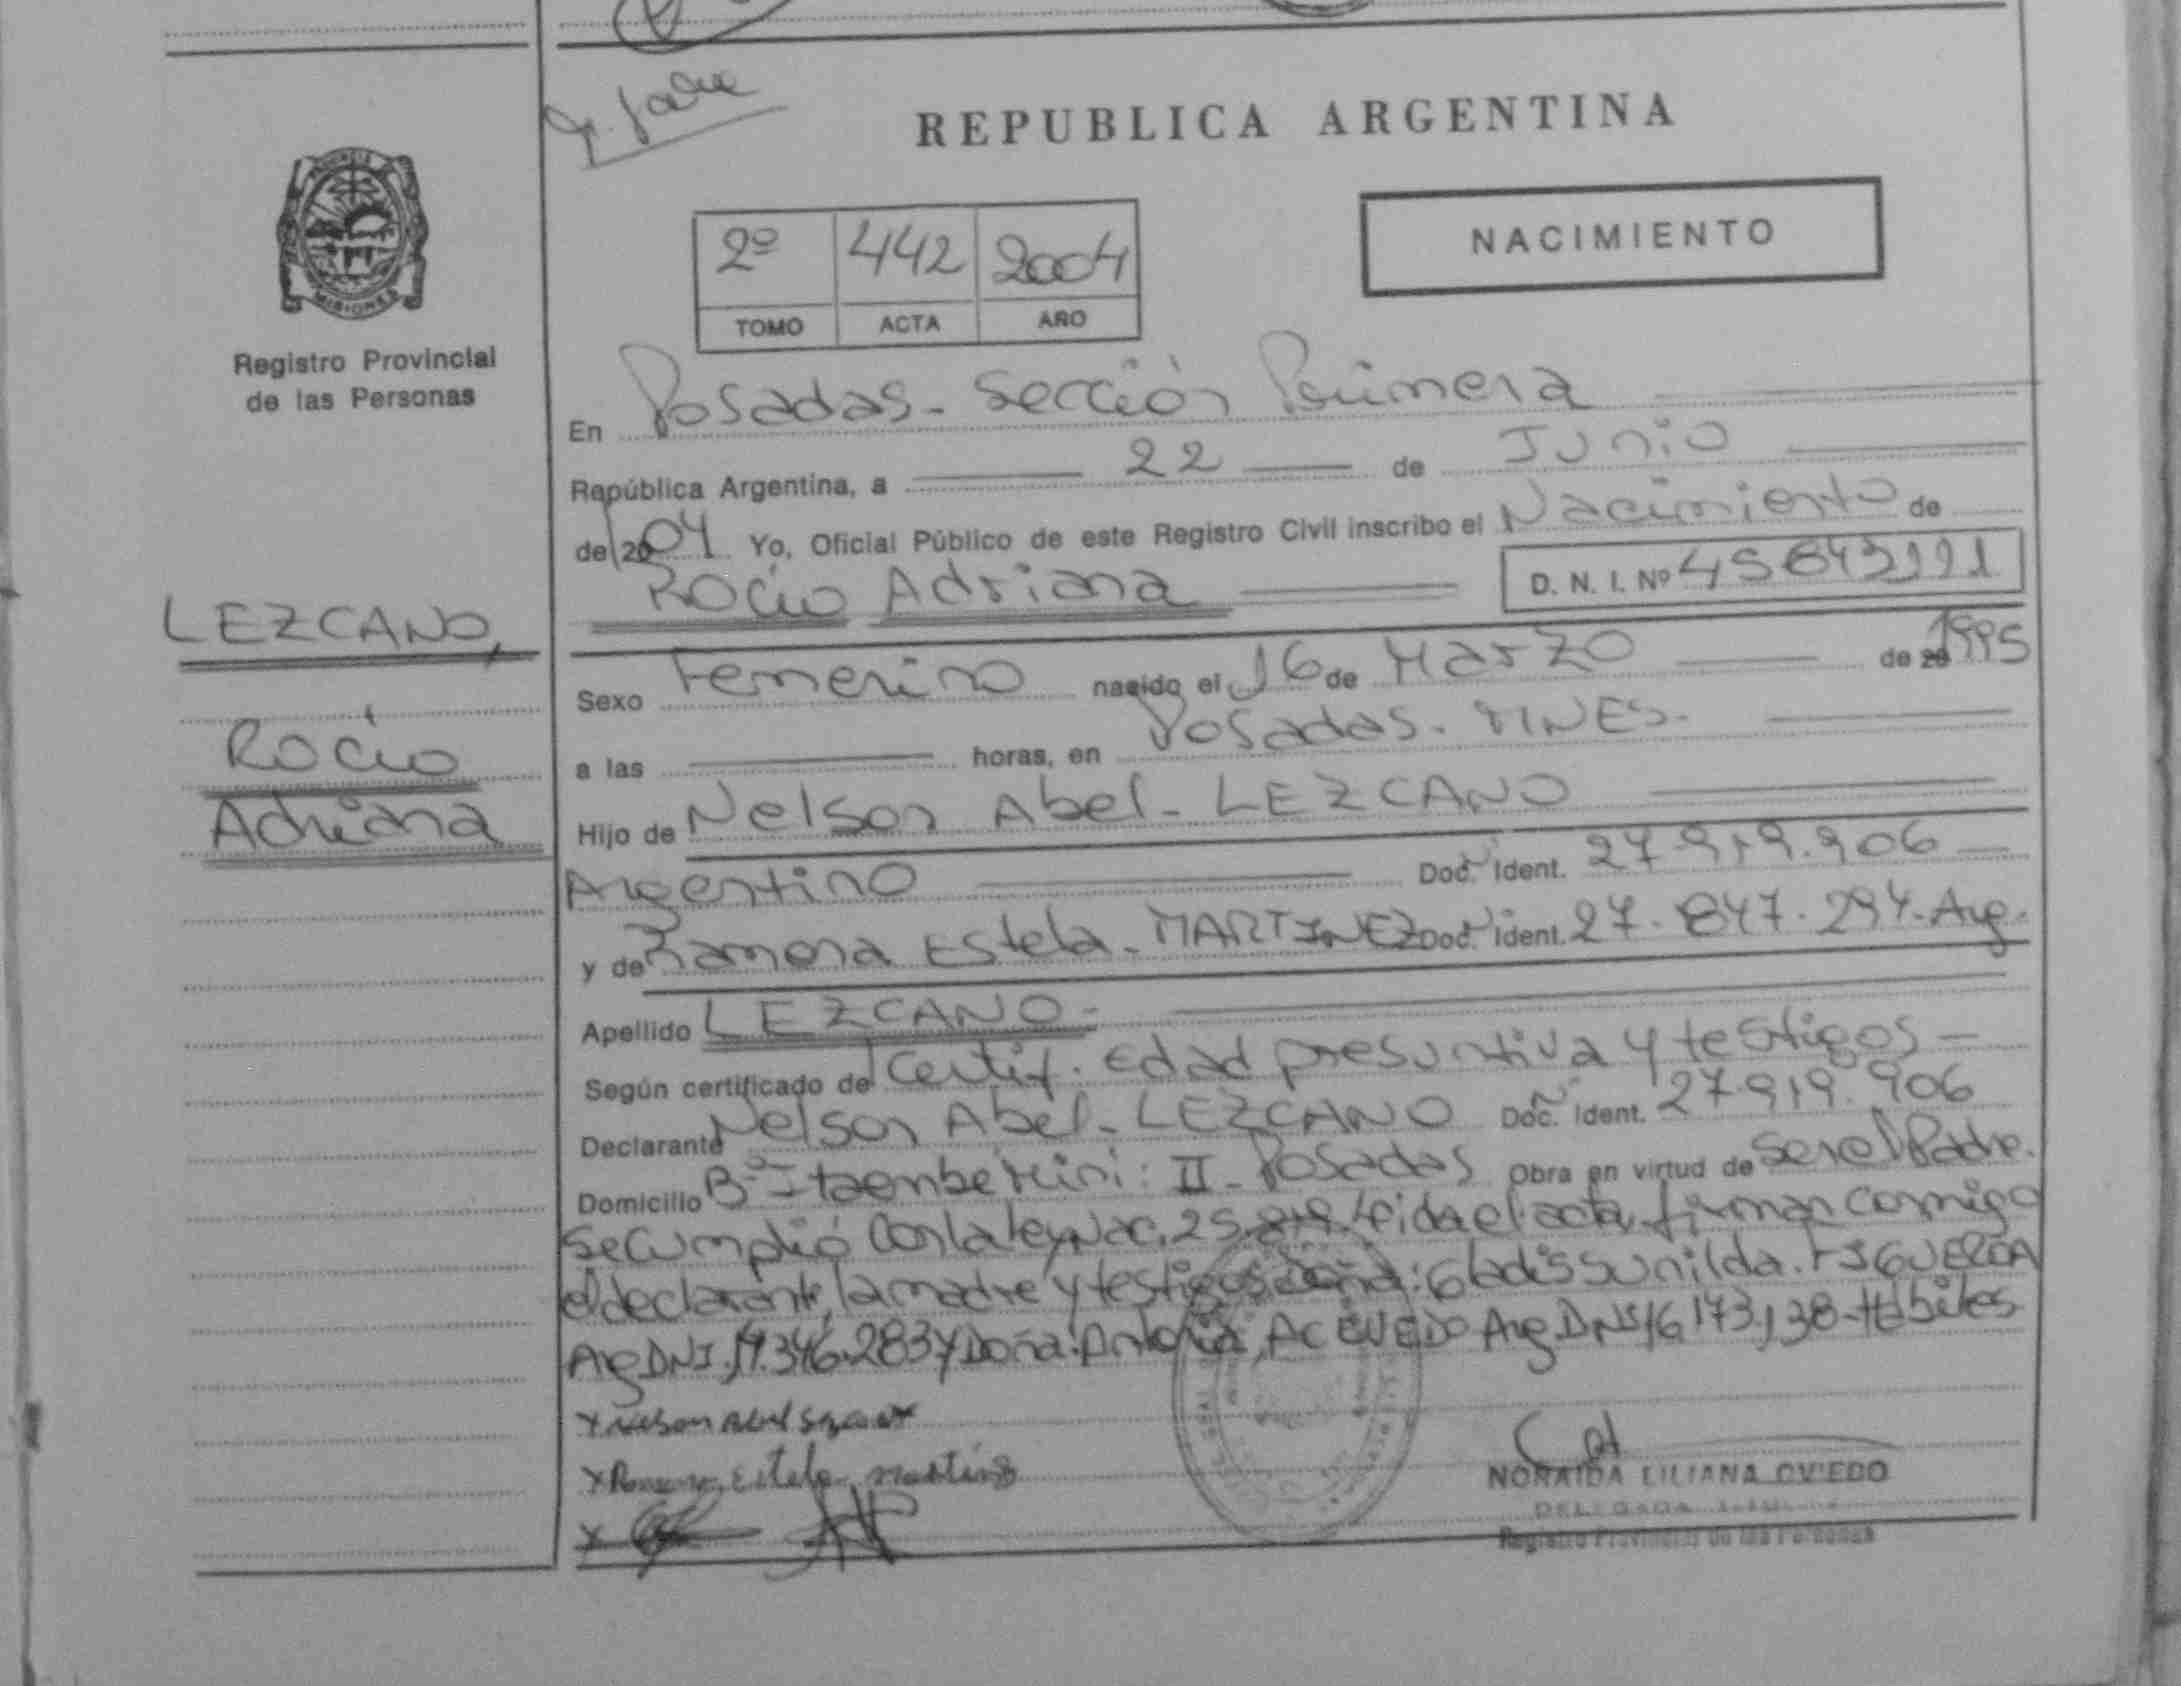 REPUBLICA ARGENTINA
NACIMIENTO
2º 442 2004
TOMO ACTA AÑO
MISIONES
Registro Provincial
de las Personas
LEZCANO,
Rocío
Adriana
En Posadas - Sección Primera
República Argentina, a 22 de Junio
de 2004 Yo, Oficial Público de este Registro Civil inscribo el Nacimiento de
Rocío Adriana D. N. I. Nº
Sexo Femenino nacido el 16 de Marzo de 1995
a las horas, en Posadas - MNES.
Hijo de Nelson Abel - LEZCANO
Argentino Doc. Ident. 27.919.906
y de Ramona Estela - MARTINEZ Doc. Ident. 27.847.294 - Arg.
Apellido LEZCANO -
Según certificado de Certif. Edad presuntiva y testigos -
Declarante Nelson Abel - LEZCANO Doc. Ident. 27919.906
Domicilio Bº Itaembé Mini: II - Posadas Obra en virtud de ser el Padre.
Se cumplió con la ley Nac. 25.819. Leida el acta firman conmigo
el declarante, la madre y testigos Doña: Gladis Sunilda. FIGUEREDA
Arg DNI. 14.346.283 y Doña: Antonia, ACEVEDO Arg. DNI 16173138 - Hábiles
x Nelson Abel
x Ramona Estela Martinez
x
NORAIDA LILIANA OVIEDO
DELEGADA
Registro Provincial de las Personas